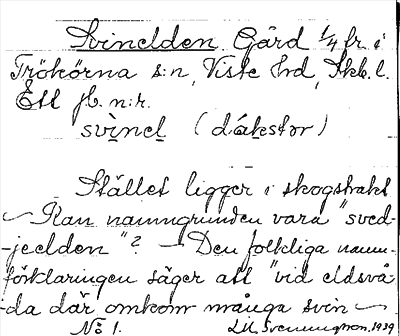 Svinelden Gård 1/4 fr. i
Trökörna s:n, Viste hrd, Skb. l.
Ett jb. n:r.
svìnel (dákstor)
Stället ligger i skogstrakt
– Kan namngrunden vara "sved-
-jeelden"? – Den folkliga namn-
förklaringen säger att "vid eldsvå-
da där omkom många svin –
No 1. Svenningson, 1929